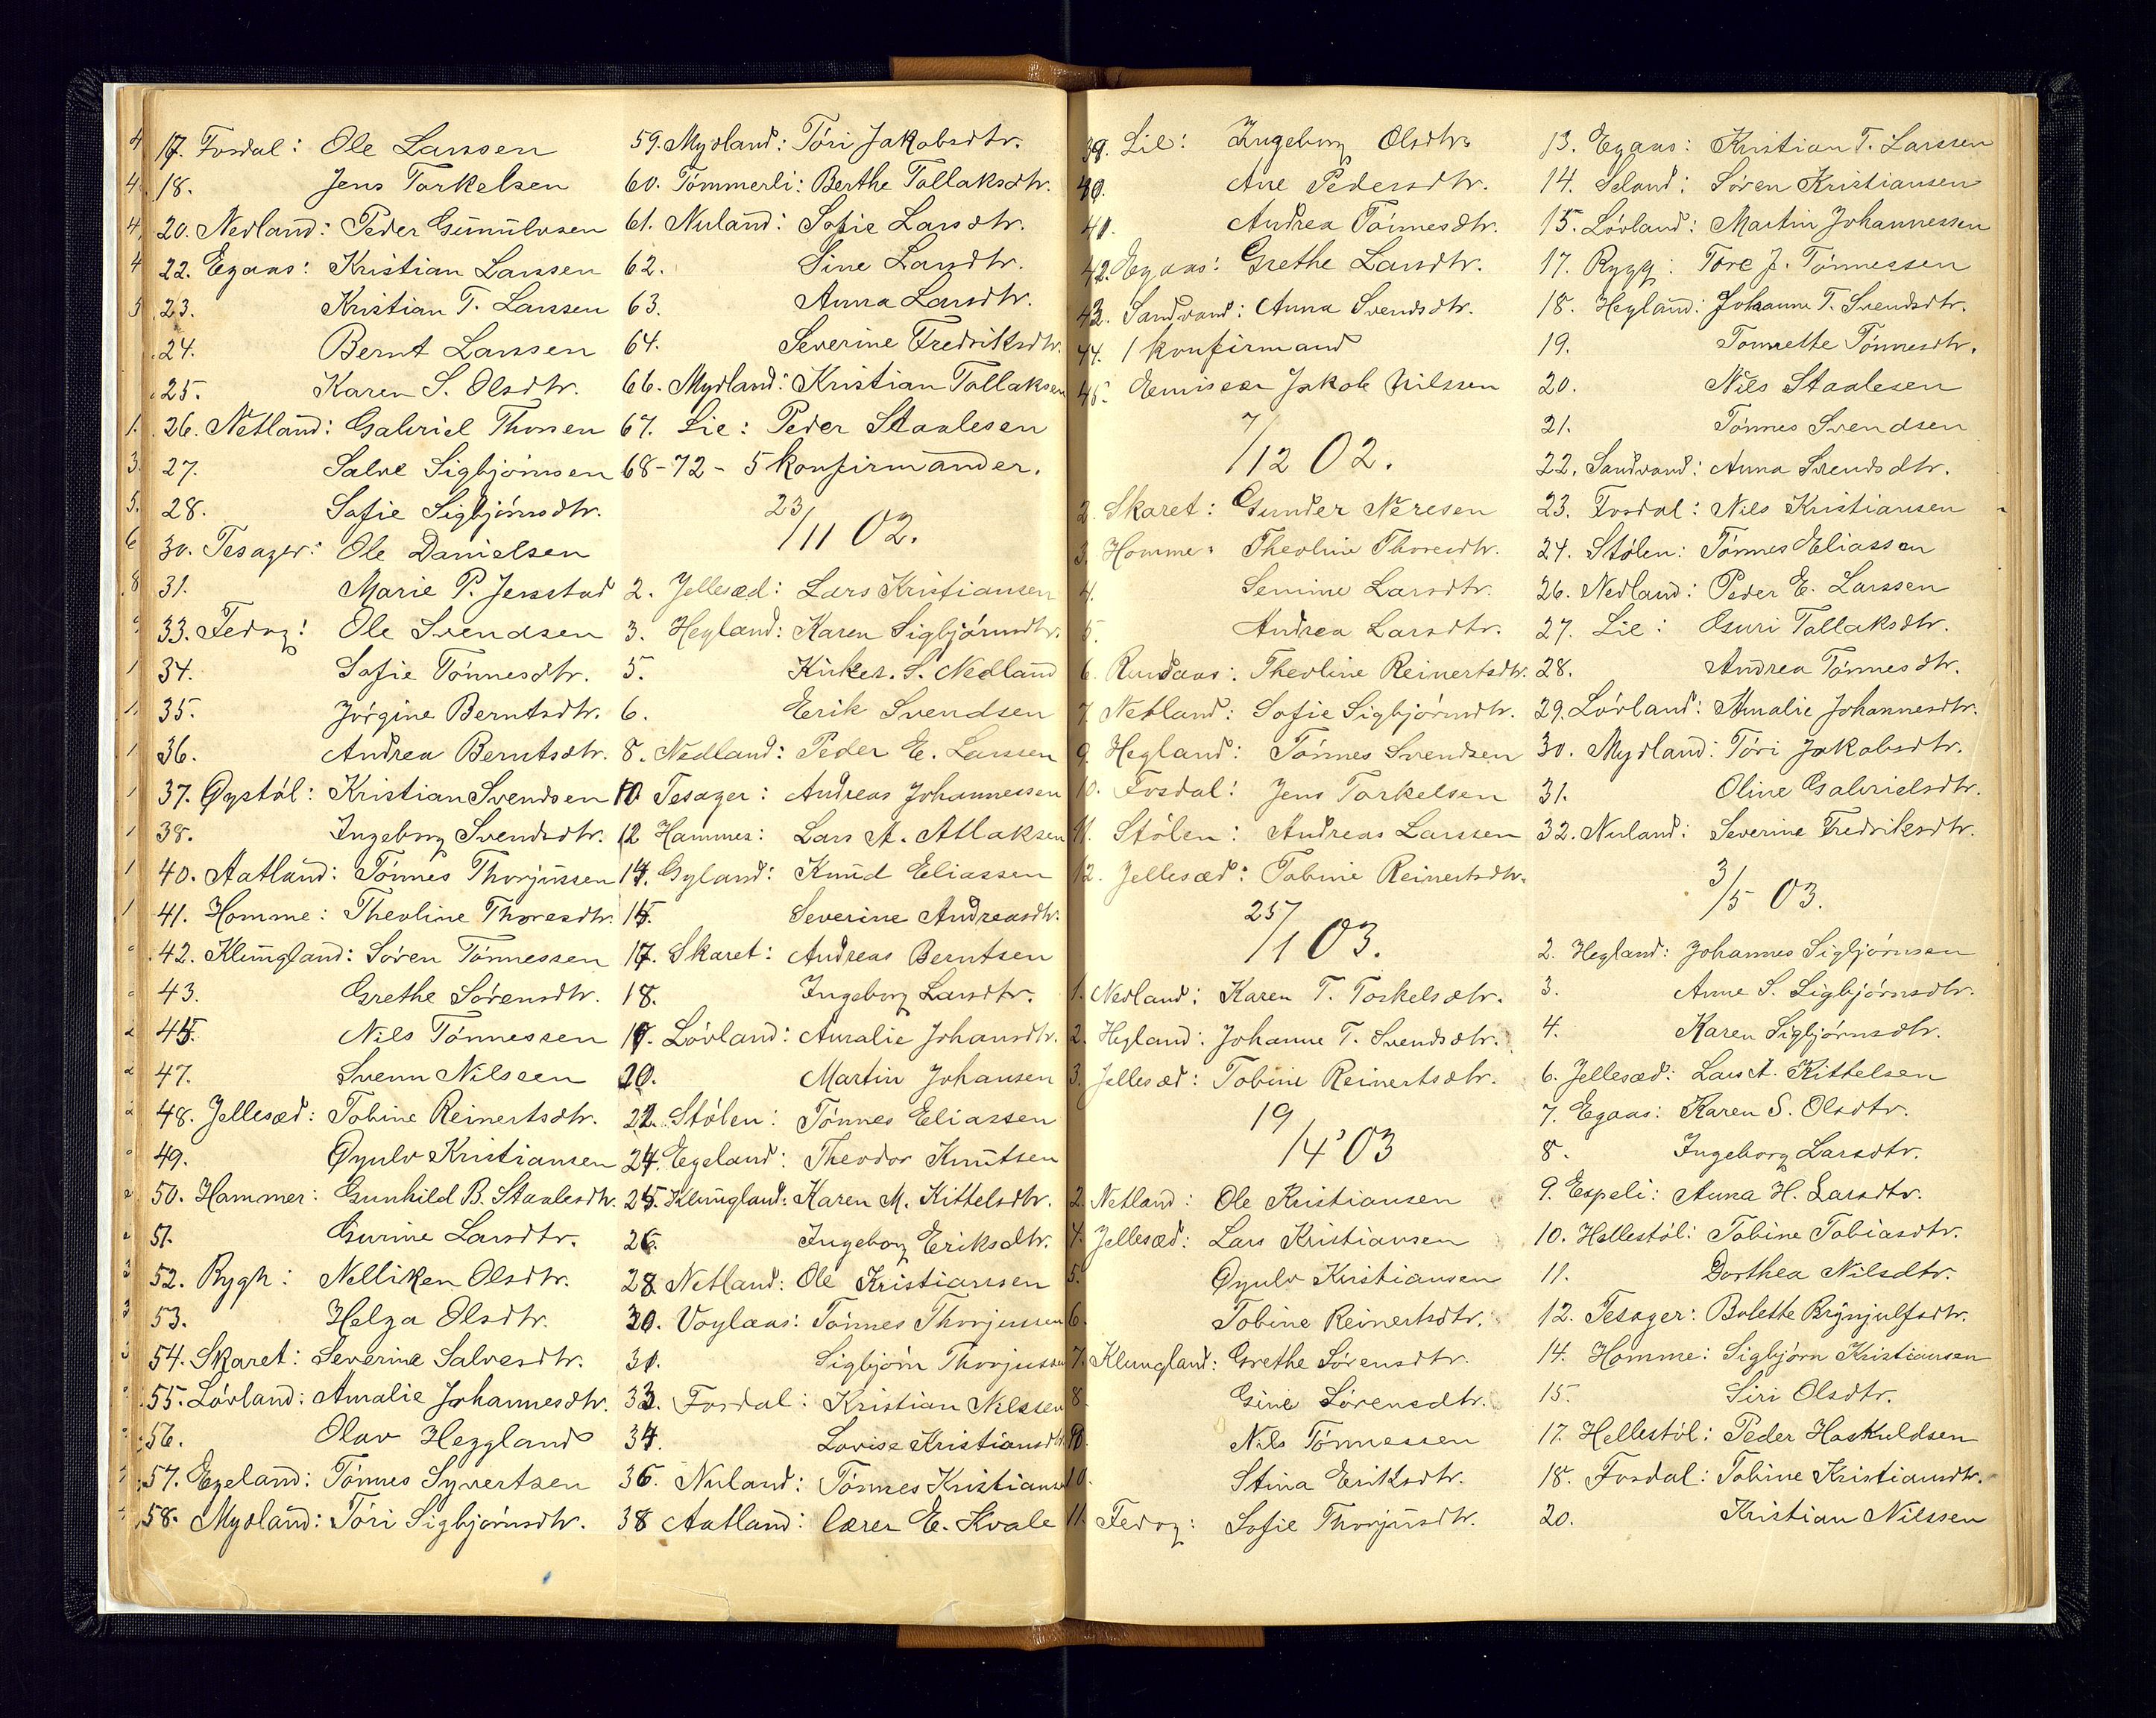 17. Fosdal: Ole Larssen
18. Jens Torkelsen
20. Nedland: Peder Gunnulvsen
22. Egaas: Kristian Larssen
23. Kristian T. Larssen
24. Bernt Larssen
25. Karen S. Olsdtr.
26. Netland: Gabriel Thorsen
27. Salve Sigbjörnsen
28. Sofie Sigbjörnsdtr.
30. Tesager: Ole Danielsen
31. Marie P. Jerstad
33. Fedog: Ole Svendsen
34. Sofie Tönnesdtr.
35. Jörgine Berntsdtr.
36. Andrea Berntsdtr.
37. Öystöl: Kristian Svendsen
38. Ingeborg Svendsdtr.
40. Aatland: Tönnes Thorjussen
41. Homme: Theoline Thoresdtr.
42. Klungland: Sören Tönnessen
43. Grethe Sörensdtr.
45. Nils Tönnessen
47. Svenn Nilssen
48. Jellesæd: Tobine Reinertsdtr.
49. Öyulv Kristiansen
50. Hammer: Gunhild B. Staalesdtr.
51. Gurine Larsdtr.
52. Rygh: Nelliken Olsdtr.
53. Helga Olsdtr.
54. Skaret: Severine Salvesdtr.
55. Lövland: Amalie Johannesdtr.
56. Olav Heggland
57. Egeland: Tönnes Syvertsen
58. Mydland: Töri Sigbjörnsdtr.
59. Mydland: Töri Jakobsdtr.
60. Tömmerli: Berthe Tollaksdtr.
61. Nuland: Sofie Larsdtr.
62. Sine Larsdtr.
63. Anna Larsdtr.
64. Severine Fredriksdtr.
66. Mydland: Kristian Tollaksen
67. Lie: Peder Staalesen
68-72 - 5 konfirmander.
23/11 02.
2. Jellesæd: Lars Kristiansen
3. Hegland: Karen Sigbjörnsdtr.
5. Kirkes. S. Nedland
6. Erik Svendsen
8. Nedland: Peder E. Larssen
10. Tesager: Andreas Johannessen
12. Hammer: Lars A. Atlaksen
14. Gyland: Knud Eliassen
15. Severine Andreasdtr.
17. Skaret: Andreas Berntsen
18. Ingeborg Larsdtr.
19. Lövland: Amalie Johansdtr.
20. Martin Johansen
22. Stölen: Tönnes Eliassen
24. Egeland: Theodor Knutsen
25. Klungland: Karen M. Kittelsdtr.
26. Ingeborg Eriksdtr.
28. Netland: Ole Kristiansen
30. Voglaas: Tönnes Thorjussen
31. Sigbjörn Thorjussen
33. Fosdal: Kristian Nilssen
34. Lovise Kristiansdtr.
36. Nuland: Tönnes Kristiansen
38 Aatland: lærer E. Kvale
39. Lie: Ingeborg Olsdtr.
40. Ane Pedersdtr.
41. Andrea Tönnesdtr.
42. Egaas: Grethe Larsdtr.
43. Sandvand: Anna Svendsdtr.
44. 1 konfirmand
45. Emissær Jakob Nilssen
7/12 02.
2. Skaret: Gunder Neresen
3. Homme: Theoline Thoresdtr.
4. Semine Larsdtr.
5. Andrea Larsdtr.
6. Rundaas: Theoline Reinertsdtr.
7. Netland: Sofie Sigbjörnsdtr.
9. Hegland: Tönnes Svendsen
10. Fosdal: Jens Torkelsen
11. Stölen: Andreas Larssen
12. Jellesæd: Tobine Reinertsdtr.
25/1 03.
1. Nedland: Karen T. Torkelsdtr.
2. Hegland: Johanne T. Svendsdtr.
3. Jellesæd: Tobine Reinertsdtr.
19/4 03
2. Netland: Ole Kristiansen
4. Jellesæd: Lars Kristiansen
5. Öyulv Kristiansen
6. Tobine Reinertsdtr.
7. Klungland: Grethe Sörensdtr.
8. Gine Sörensdtr.
9. Nils Tönnessen
10. Stina Eriksdtr.
11. Fedog: Sofie Thorjusdtr.
13. Egaas: Kristian T. Larssen
14. Seland: Sören Kristiansen
15. Lövland: Martin Johannessen
17. Rygg: Tore J. Tönnessen
18. Hegland: Johanne T. Svendsdtr.
19. Tomette Tönnesdtr.
20. Nils Staalesen
21. Tönnes Svendsen
22. Sandvand: Anna Svendsdtr.
23. Fosdal: Nils Kristiansen
24. Stölen: Tönnes Eliassen
26. Nedland: Peder E. Larssen
27. Lie: Osuri Tallaksdtr.
28. Andrea Tönnesdtr.
29. Lövland: Amalie Johannesdtr.
30. Mydland: Töri Jakobsdtr.
31. Oline Gabrielsdtr.
32. Nuland: Severine Fredriksdtr.
3/5 03.
2. Hegland: Johannes Sigbjörnsen
3. Anne S. Sigbjörnsdtr.
4. Karen Sigbjörnsdtr.
6. Jellesæd: Lars A. Kittelsen
7. Egaas: Karen S. Olsdtr.
8. Ingeborg Larsdtr.
9. Espeli: Anna H. Larsdtr.
10. Hellestöl: Tobine Tobiasdtr.
11. Dorthea Nilsdtr.
12. Tesager: Bolette Brynjulfsdtr.
14. Homme: Sigbjörn Kristiansen
15. Siri Olsdtr.
17. Hellestöl: Peder Haskuldsen
18. Fosdal: Tobine Kristiansdtr.
20. Kristian Nilssen